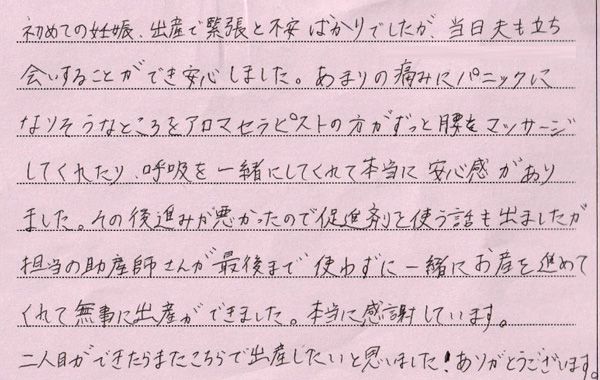 初めての妊娠、出産で緊張と不安ばかりでしたが、当日夫も立ち
会いすることができ安心しました。あまりの痛みにパニックに
なりそうなところをアロマセラピストの方がずっと腰をマッサージ
してくれたり、呼吸を一緒にしてくれて本当に安心感があり
ました。その後進みが悪かったので促進剤を使う話も出ましたが
担当の助産師さんが最後まで使わずに一緒にお産を進めて
くれて無事に出産ができました。本当に感謝しています。
二人目ができたらまたこちらで出産したいと思いました!ありがとうございます。